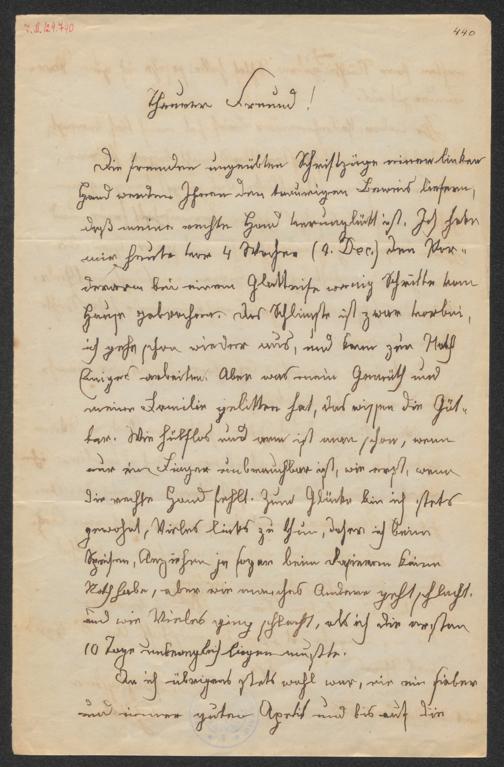 7. II. 129.740
440
Theurer Freund!
Die fremden ungeübten Schriftzüge meiner linken
Hand werden Ihnen den traurigen Beweis liefern,
daß meine rechte Hand verunglückt ist. Ich habe
mir heute vor 4 Wochen (9. Dec.) den Vor-
derarm bei einem Glatteise wenig Schritte vom
Hause gebrochen. Das Schlimste ist zwar vorbei,
ich gehe schon wieder aus, und kann zur Noth
Einiges arbeiten. Aber was mein Gemüth und
meine Familie gelitten hat, das wissen die Göt-
ter. Wie hülflos und arm ist man schon, wenn
nur ein Finger unbrauchbar ist, wie erst, wenn
die rechte Hand fehlt. Zum Glücke bin ich stets
gewohnt, Vieles links zu thun, daher ich beim
Speisen, Anziehen ja sogar beim Rasieren keine
Noth habe, aber wie manches Andere geht schlecht.
Und wie Vieles ging schlecht, als ich die ersten
10 Tage unbeweglich liegen mußte.
Da ich übrigens stets wohl war, nie ein Fieber
und immer guten Apetit und bis auf die